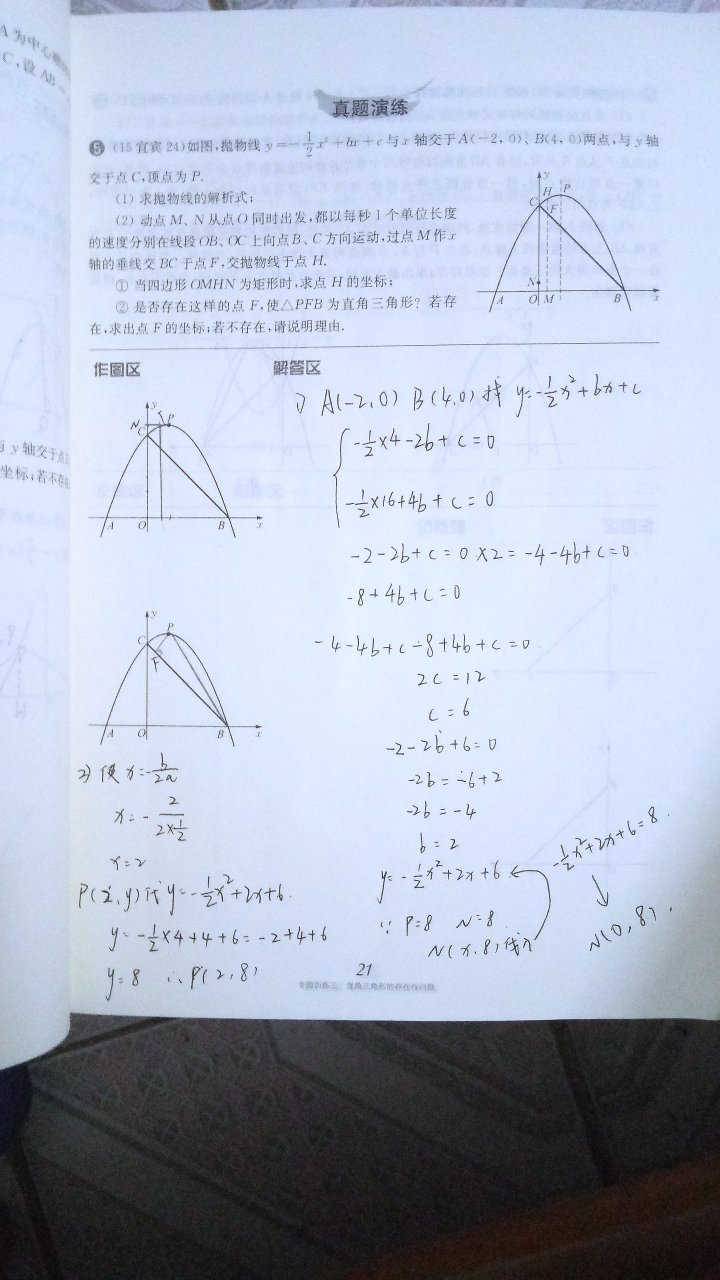 A为中心
C,设AB=
与y轴交于点
坐标;若不存在
真题演练
5 (15宜宾24)如图,抛物线y=-1/2x²+bx+c与x轴交于A(-2,0)、B(4,0)两点,与y轴
交于点C,顶点为P.
(1)求抛物线的解析式;
(2)动点M、N从点O同时出发,都以每秒1个单位长度
的速度分别在线段OB、OC上向点B、C方向运动,过点M作x
轴的垂线交BC于点F,交抛物线于点H.
①当四边形OMHN为矩形时,求点H的坐标;
②是否存在这样的点F,使△PFB为直角三角形?若存
在,求出点F的坐标;若不存在,请说明理由.
y
H P
C F
N
A O M B x
作图区
解答区
y
N P
C
A O B x
y
C P
F
A O B x
1) A(-2,0) B(4,0)找 y=-1/2x²+bx+c
-1/2×4-2b+c=0
-1/2×16+4b+c=0
-2-2b+c=0×2=-4-4b+c=0
-8+4b+c=0
-4-4b+c-8+4b+c=0
2c=12
c=6
-2-2b+6=0
-2b=-6+2
-2b=-4
b=2
y=-1/2x²+2x+6
∵P=8 N=8
N(x,8)代入
-1/2x²+2x+6=8
N(0,8).
2) 使x=-b/2a
x=-2/2×1/2
x=2
P(2,y)代y=-1/2x²+2x+6
y=-1/2×4+4+6=-2+4+6
y=8 ∴P(2,8)
21
专题训练三 直角三角形的存在性问题